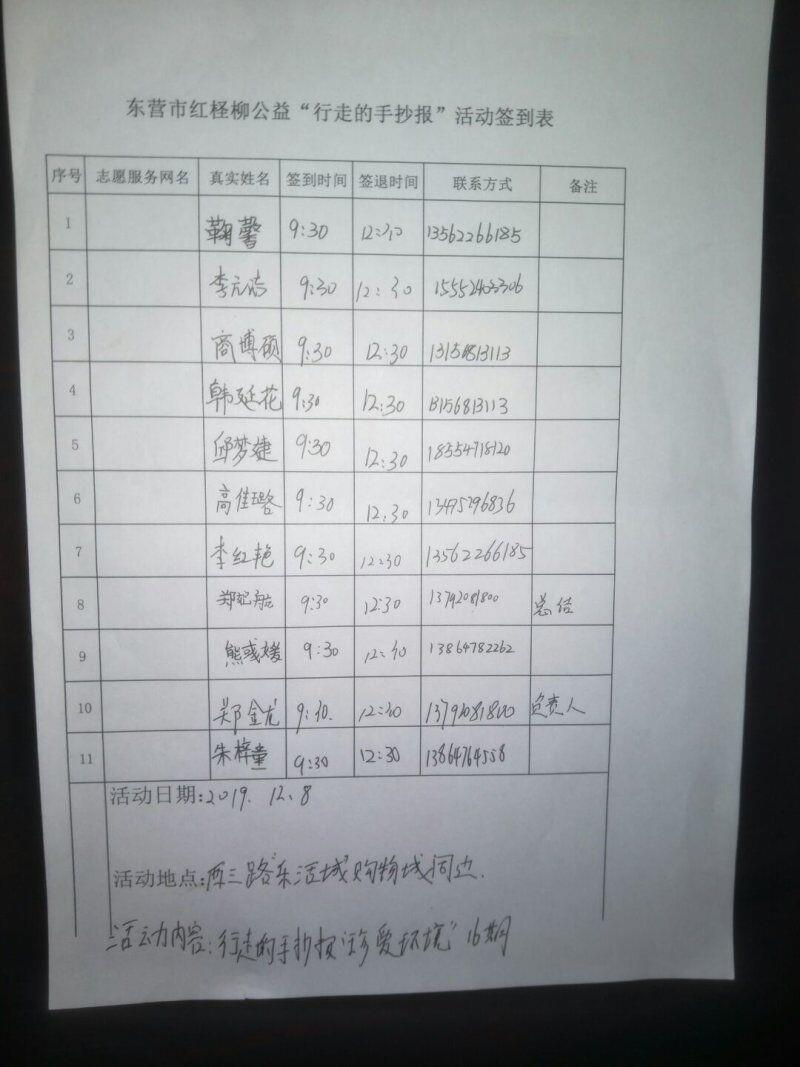 东营市红柽柳公益“行走的手抄报”活动签到表
序号 志愿服务网名 真实姓名 签到时间 签退时间 联系方式 备注
1 鞠馨 9:30 12:30 13562266185
2 李元浩 9:30 12:30 15552403306
3 商博硕 9:30 12:30 13156813113
4 韩延花 9:30 12:30 13156813113
5 邱梦婕 9:30 12:30 18554718120
6 高佳璐 9:30 12:30 13495796836
7 李红艳 9:30 12:30 13562266185
8 郑 9:30 12:30 13792081800 总结
9 熊彧媛 9:30 12:30 13864782262
10 郑金龙 9:30. 12:30 13792081800 负责人
11 朱梓童 9:30 12:30 13864764558
活动日期:2019.12.8
活动地点:西三路"东 城"购物城 边.
活动内容:行走的手抄报"珍爱环境"16期